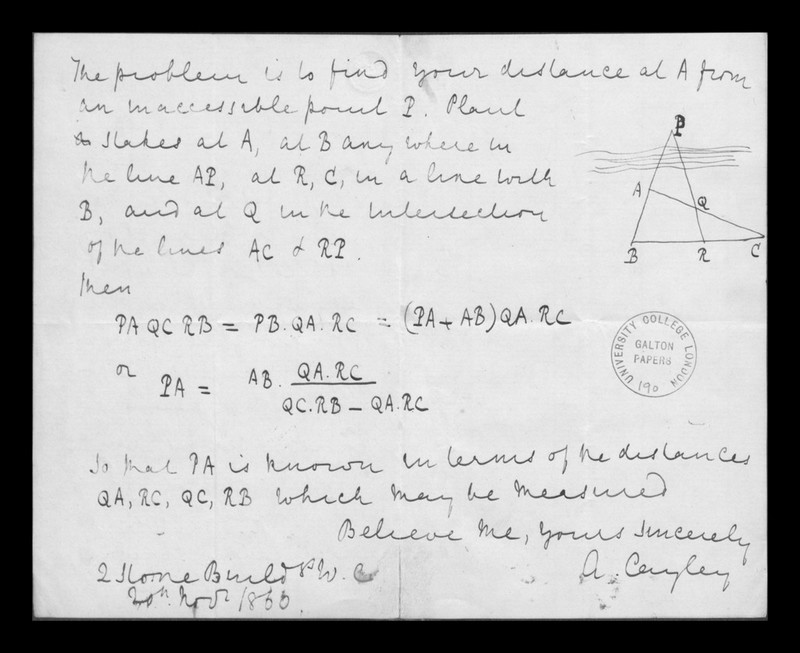 The problem is to find your distance at A from
an inaccessible point P. Plant
stakes at A, at B any where in
the line AP, at R, C, in a line with
B, and at Q in the intersection
of the lines AC & RP.
Then
PA QC RB = PB. QA. RC = (PA + AB) QA. RC
or PA = AB. QA. RC / QC. RB - QA. RC
So that PA is known in terms of the distances
QA, RC, QC, RB which may be measured
Believe me, yours sincerely
A. Cayley
2 Stone Buildgs W. C.
20th. Novr
P
A
Q
B R C
UNIVERSITY COLLEGE LONDON
GALTON
PAPERS
190